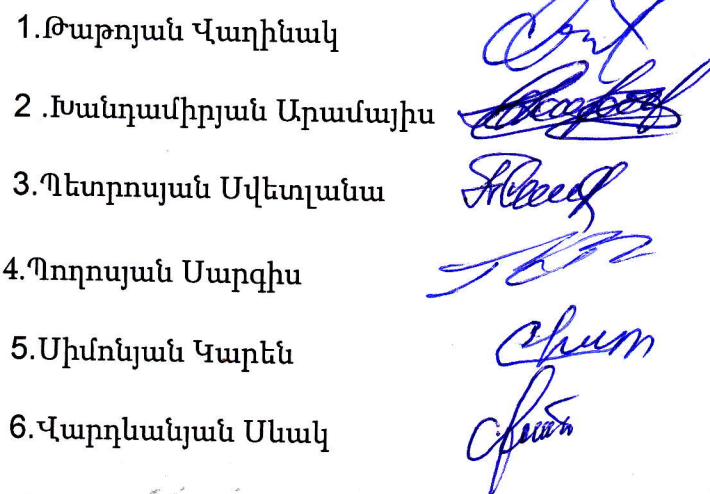 1.Թաթոյան Վաղինակ
2 .Խանդամիրյան Արամայիս
3.Պետրոսյան Սվետլանա
4.Պողոսյան Սարգիս
5.Սիմոնյան Կարեն
6.Վարդևանյան Սևակ